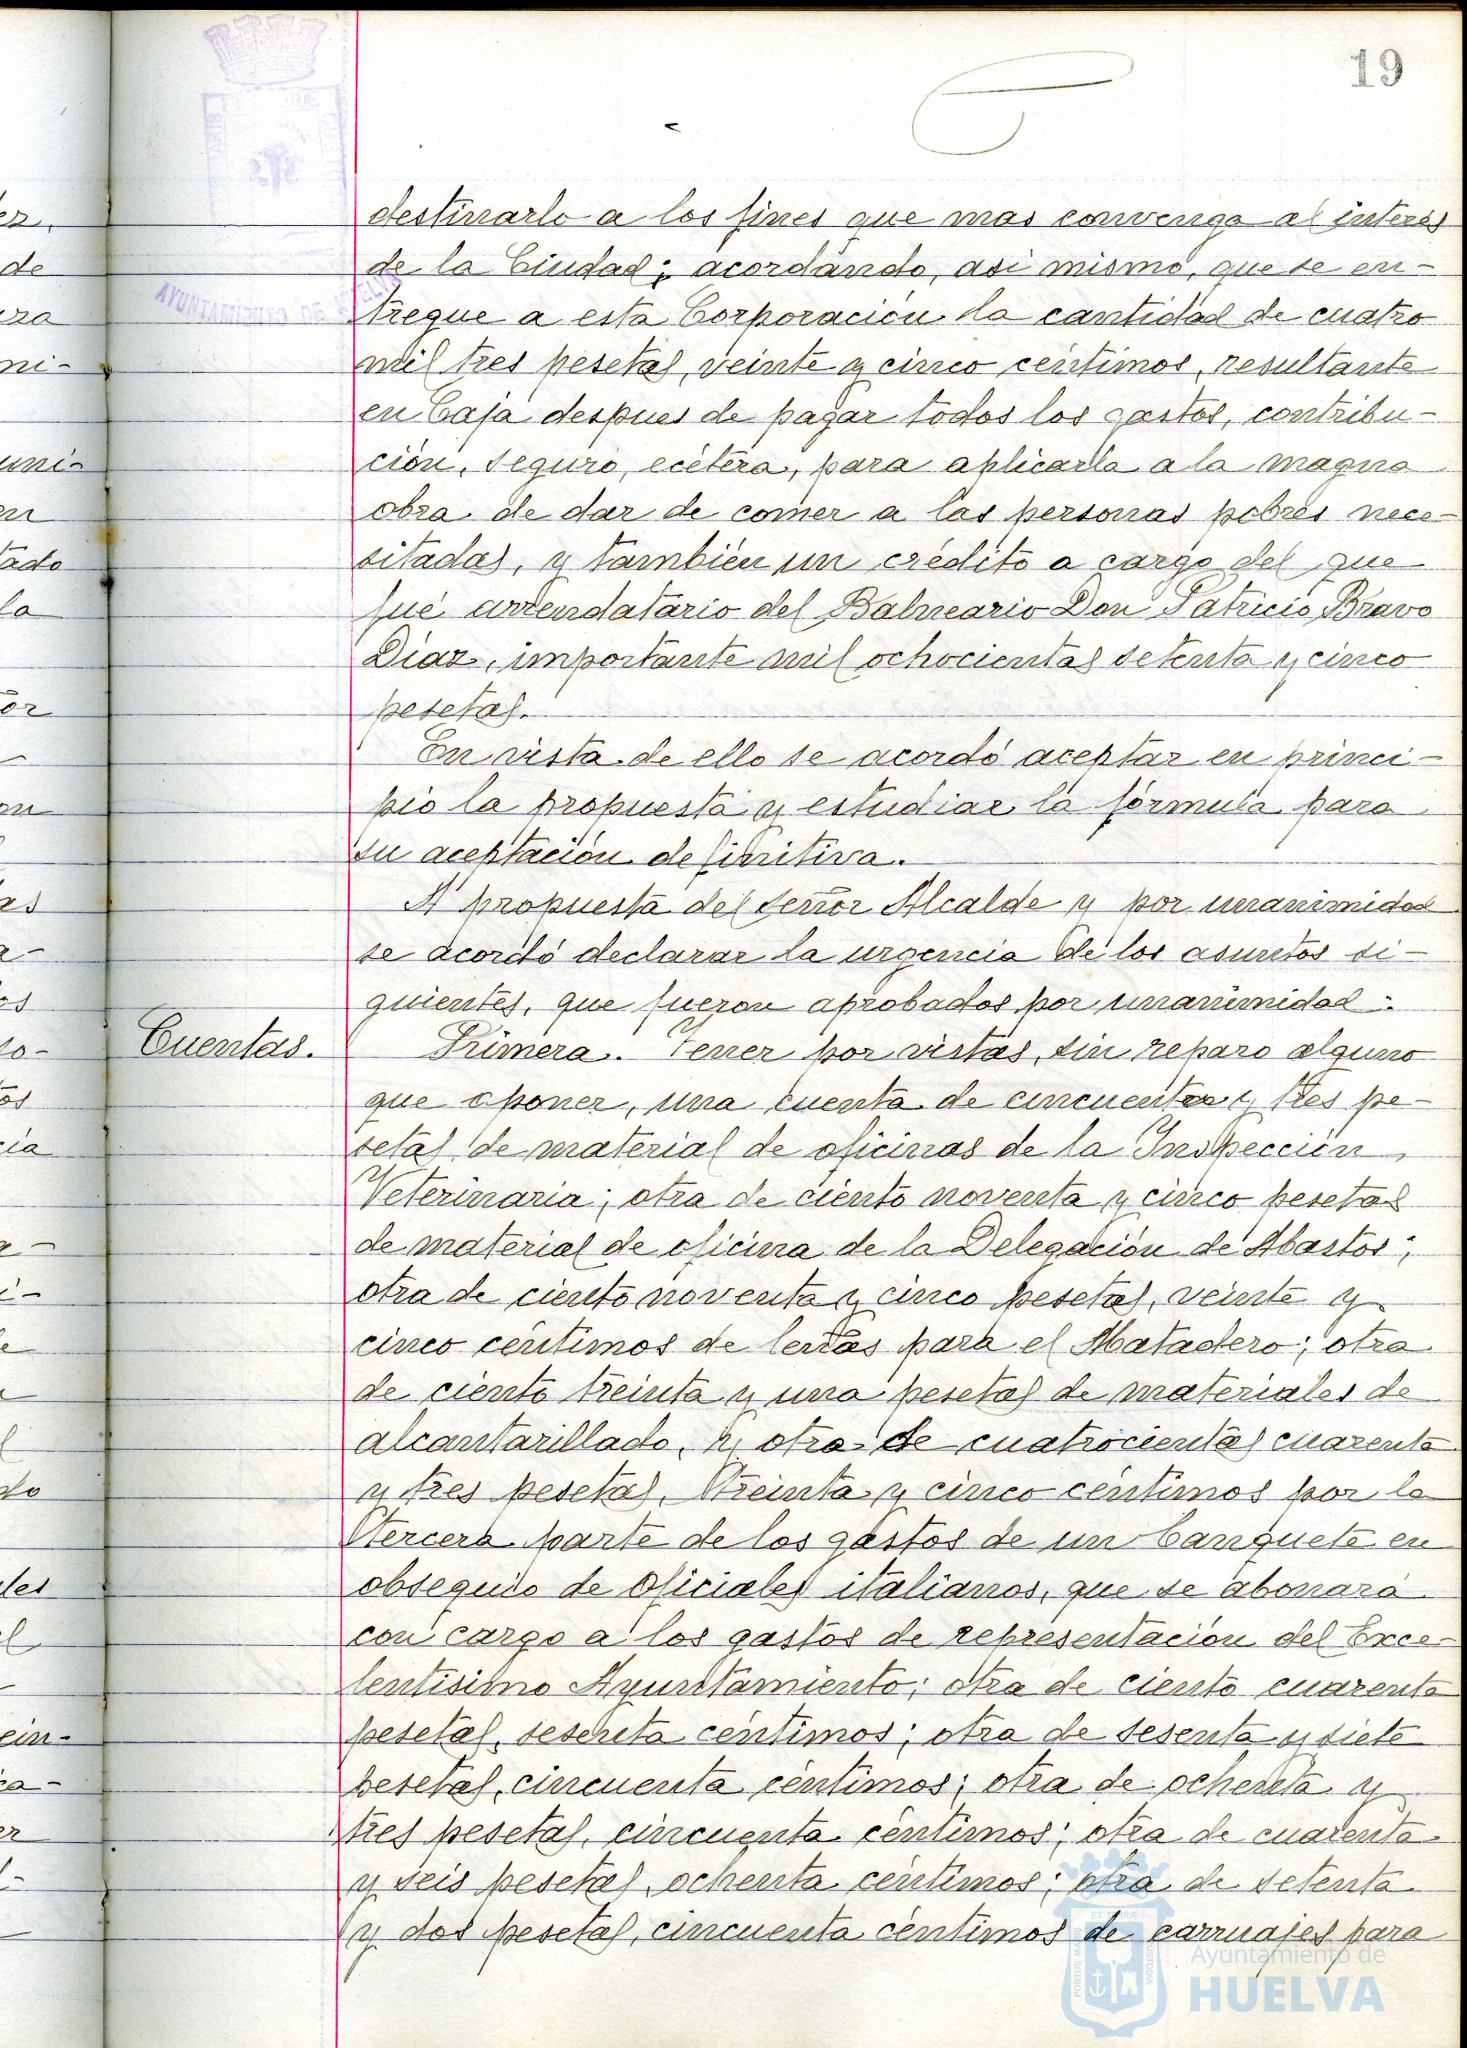 19
destinarlo a los fines que mas convenga al interés
de la Ciudad; acordando, asi mismo, que se en-
tregue a esta Corporación la cantidad de cuatro
mil tres pesetas, veinte y cinco céntimos, resultante
en Caja despues de pagar todos los gastos, contribu-
ción, seguro, ecétera, para aplicarla a la magna
obra de dar de comer a las personas pobres nece-
sitadas, y también un crédito a cargo del que
fué arrendatario del Balneario Don Patricio Bravo
Díaz, importante mil ochocientas setenta y cinco
pesetas.
En vista de ello se acordó aceptar en princi-
pio la propuesta y estudiar la fórmula para
su aceptación definitiva.
A propuesta del señor Alcalde y por unanimidad
se acordó declarar la urgencia de los asuntos si-
guientes, que fueron aprobados por unanimidad:
Cuentas.
Primera. Tener por vistas, sin reparo alguno
que oponer, una cuenta de cincuenta y tres pe-
setas de material de oficinas de la Inspección
Veterinaria; otra de ciento noventa y cinco pesetas
de material de oficina de la Delegación de Abastos;
otra de ciento noventa y cinco pesetas, veinte y
cinco céntimos de leñas para el Matadero; otra
de ciento treinta y una pesetas de materiales de
alcantarillado, y otra de cuatrocientas cuarenta
y tres pesetas, treinta y cinco céntimos por la
tercera parte de los gastos de un banquete en
obsequio de oficiales italianos, que se abonará
con cargo a los gastos de representación del Exce-
lentísimo Ayuntamiento; otra de ciento cuarenta
pesetas, sesenta céntimos; otra de sesenta y siete
pesetas, cincuenta céntimos; otra de ochenta y
tres pesetas, cincuenta céntimos; otra de cuarenta
y seis pesetas, ochenta céntimos; otra de setenta
y dos pesetas, cincuenta céntimos de carruajes para
Ayuntamiento de
HUELVA